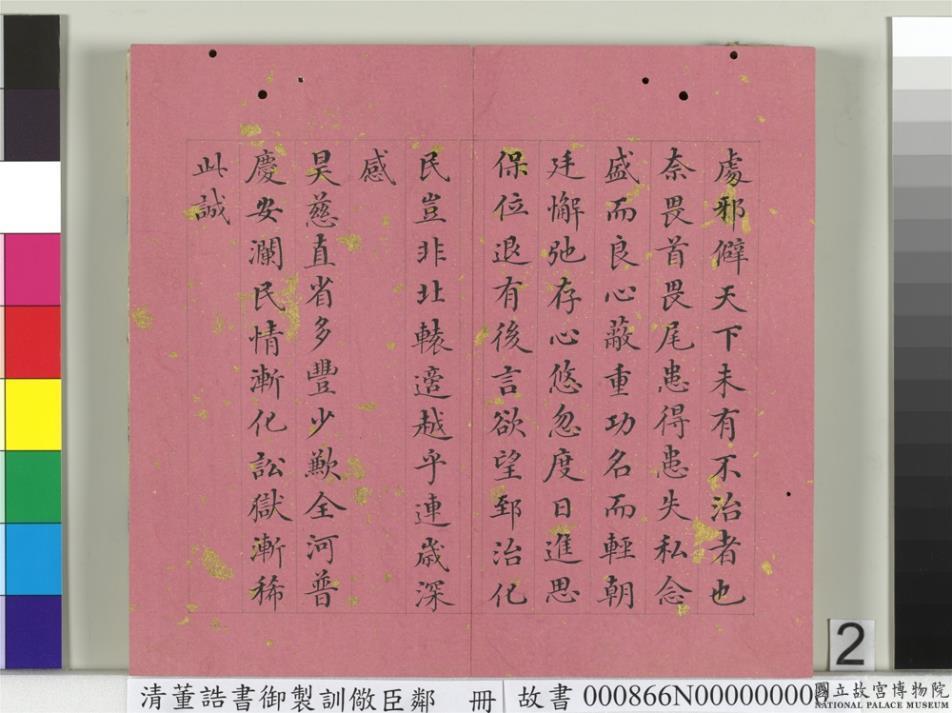 處邪僻天下未有不治者也
奈畏首畏尾患得患失私念
盛而良心蔽重功名而輕朝
廷懈弛存心悠忽度日進思
保位退有後言欲望郅治化
民豈非北轅適越乎連歲深
感
昊慈直省多豐少歉全河普
慶安瀾民情漸化訟獄漸稀
此誠
2
清董誥書御製訓儆臣鄰 冊 故書 000866N00000000
國立故宮博物院
NATIONAL PALACE MUSEUM